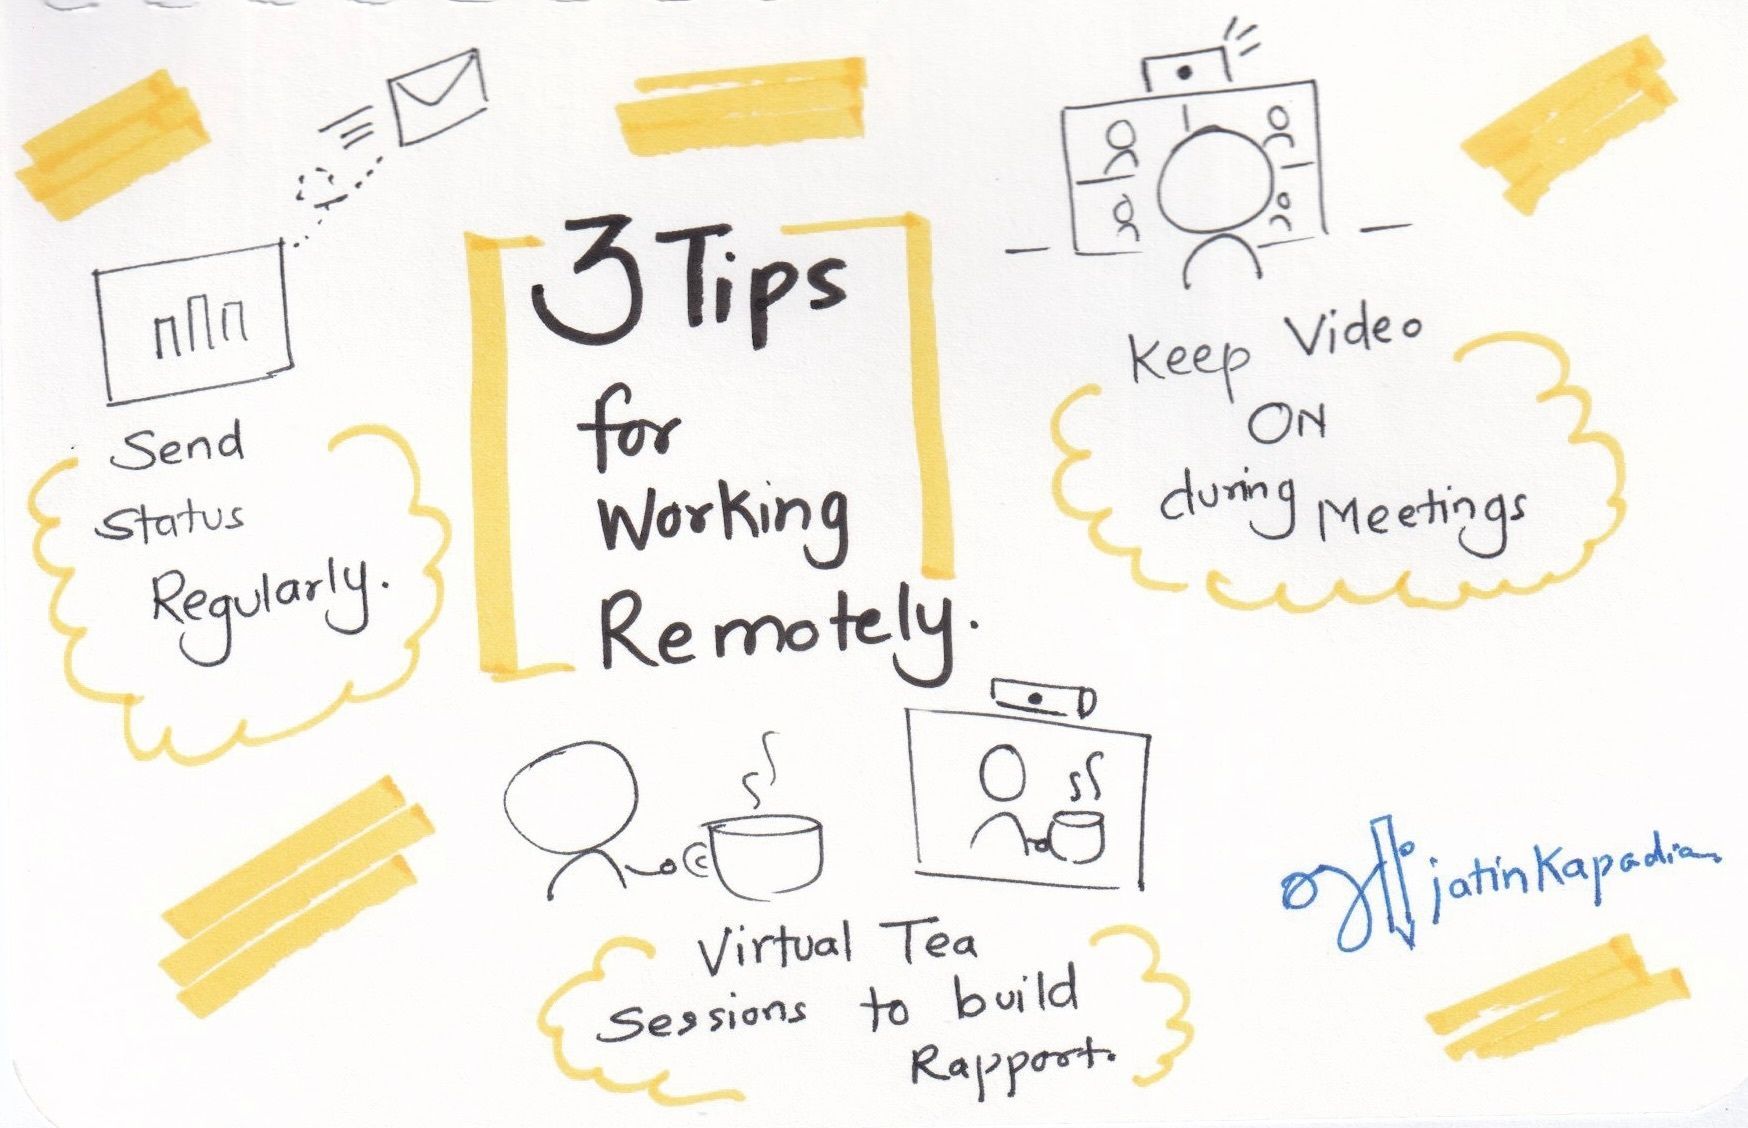 3 Tips
for
Working
Remotely.
Send
Status
Regularly.
Keep Video
ON
during Meetings
Virtual Tea
Sessions to build
Rapport.
jatinkapadia